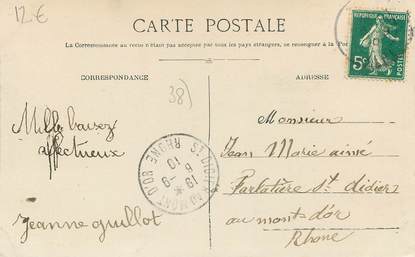 12€
CARTE POSTALE
La Correspondance au recto n'était pas acceptée par tous les pays étrangers, se renseigner à la
CORRESPONDANCE
ADRESSE
38)
RÉPUBLIQUE FRANÇAISE
5c
POSTES
Mille baisez
affectueux
Jeanne guillot
ST DIDIER AU MONT D'OR RHONE
19
6
10
Monsieur
Jean Marie aimé
St didier
au monts d'or
Rhone